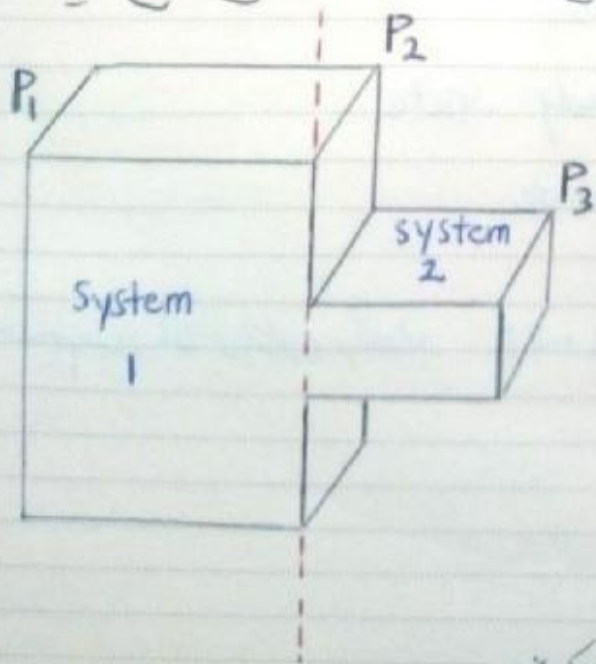 P₂
P₁
P₃
system
2
System
1